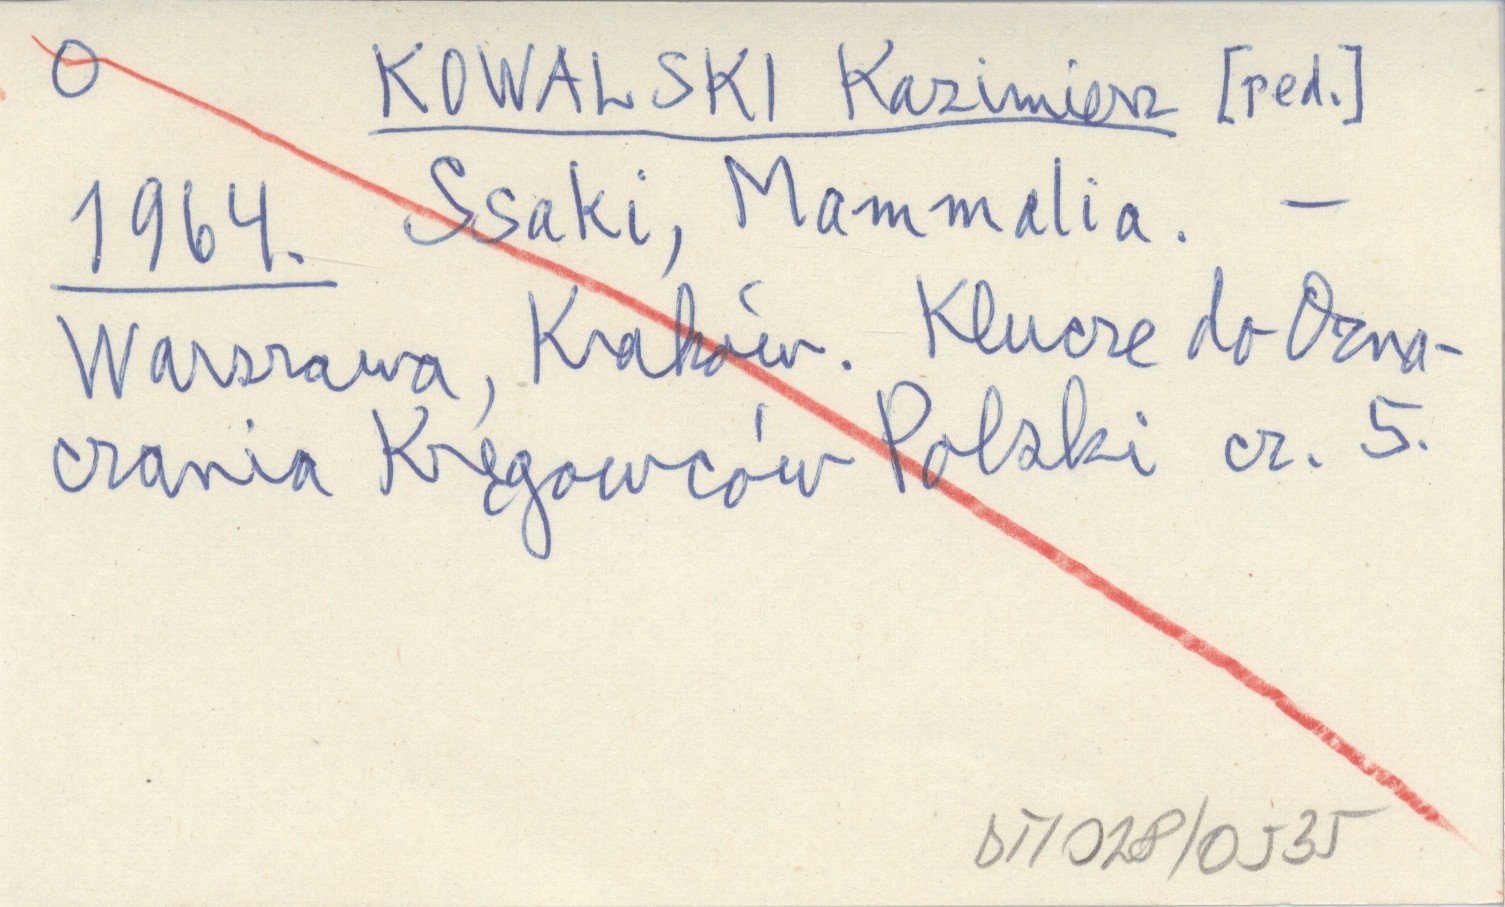 O KOWALSKI Kazimierz [red.]
1964. Ssaki, Mammalia. —
Warszawa, Kraków. Klucze do Ozna-
czania Kręgowców Polski cz. 5.
028/0535